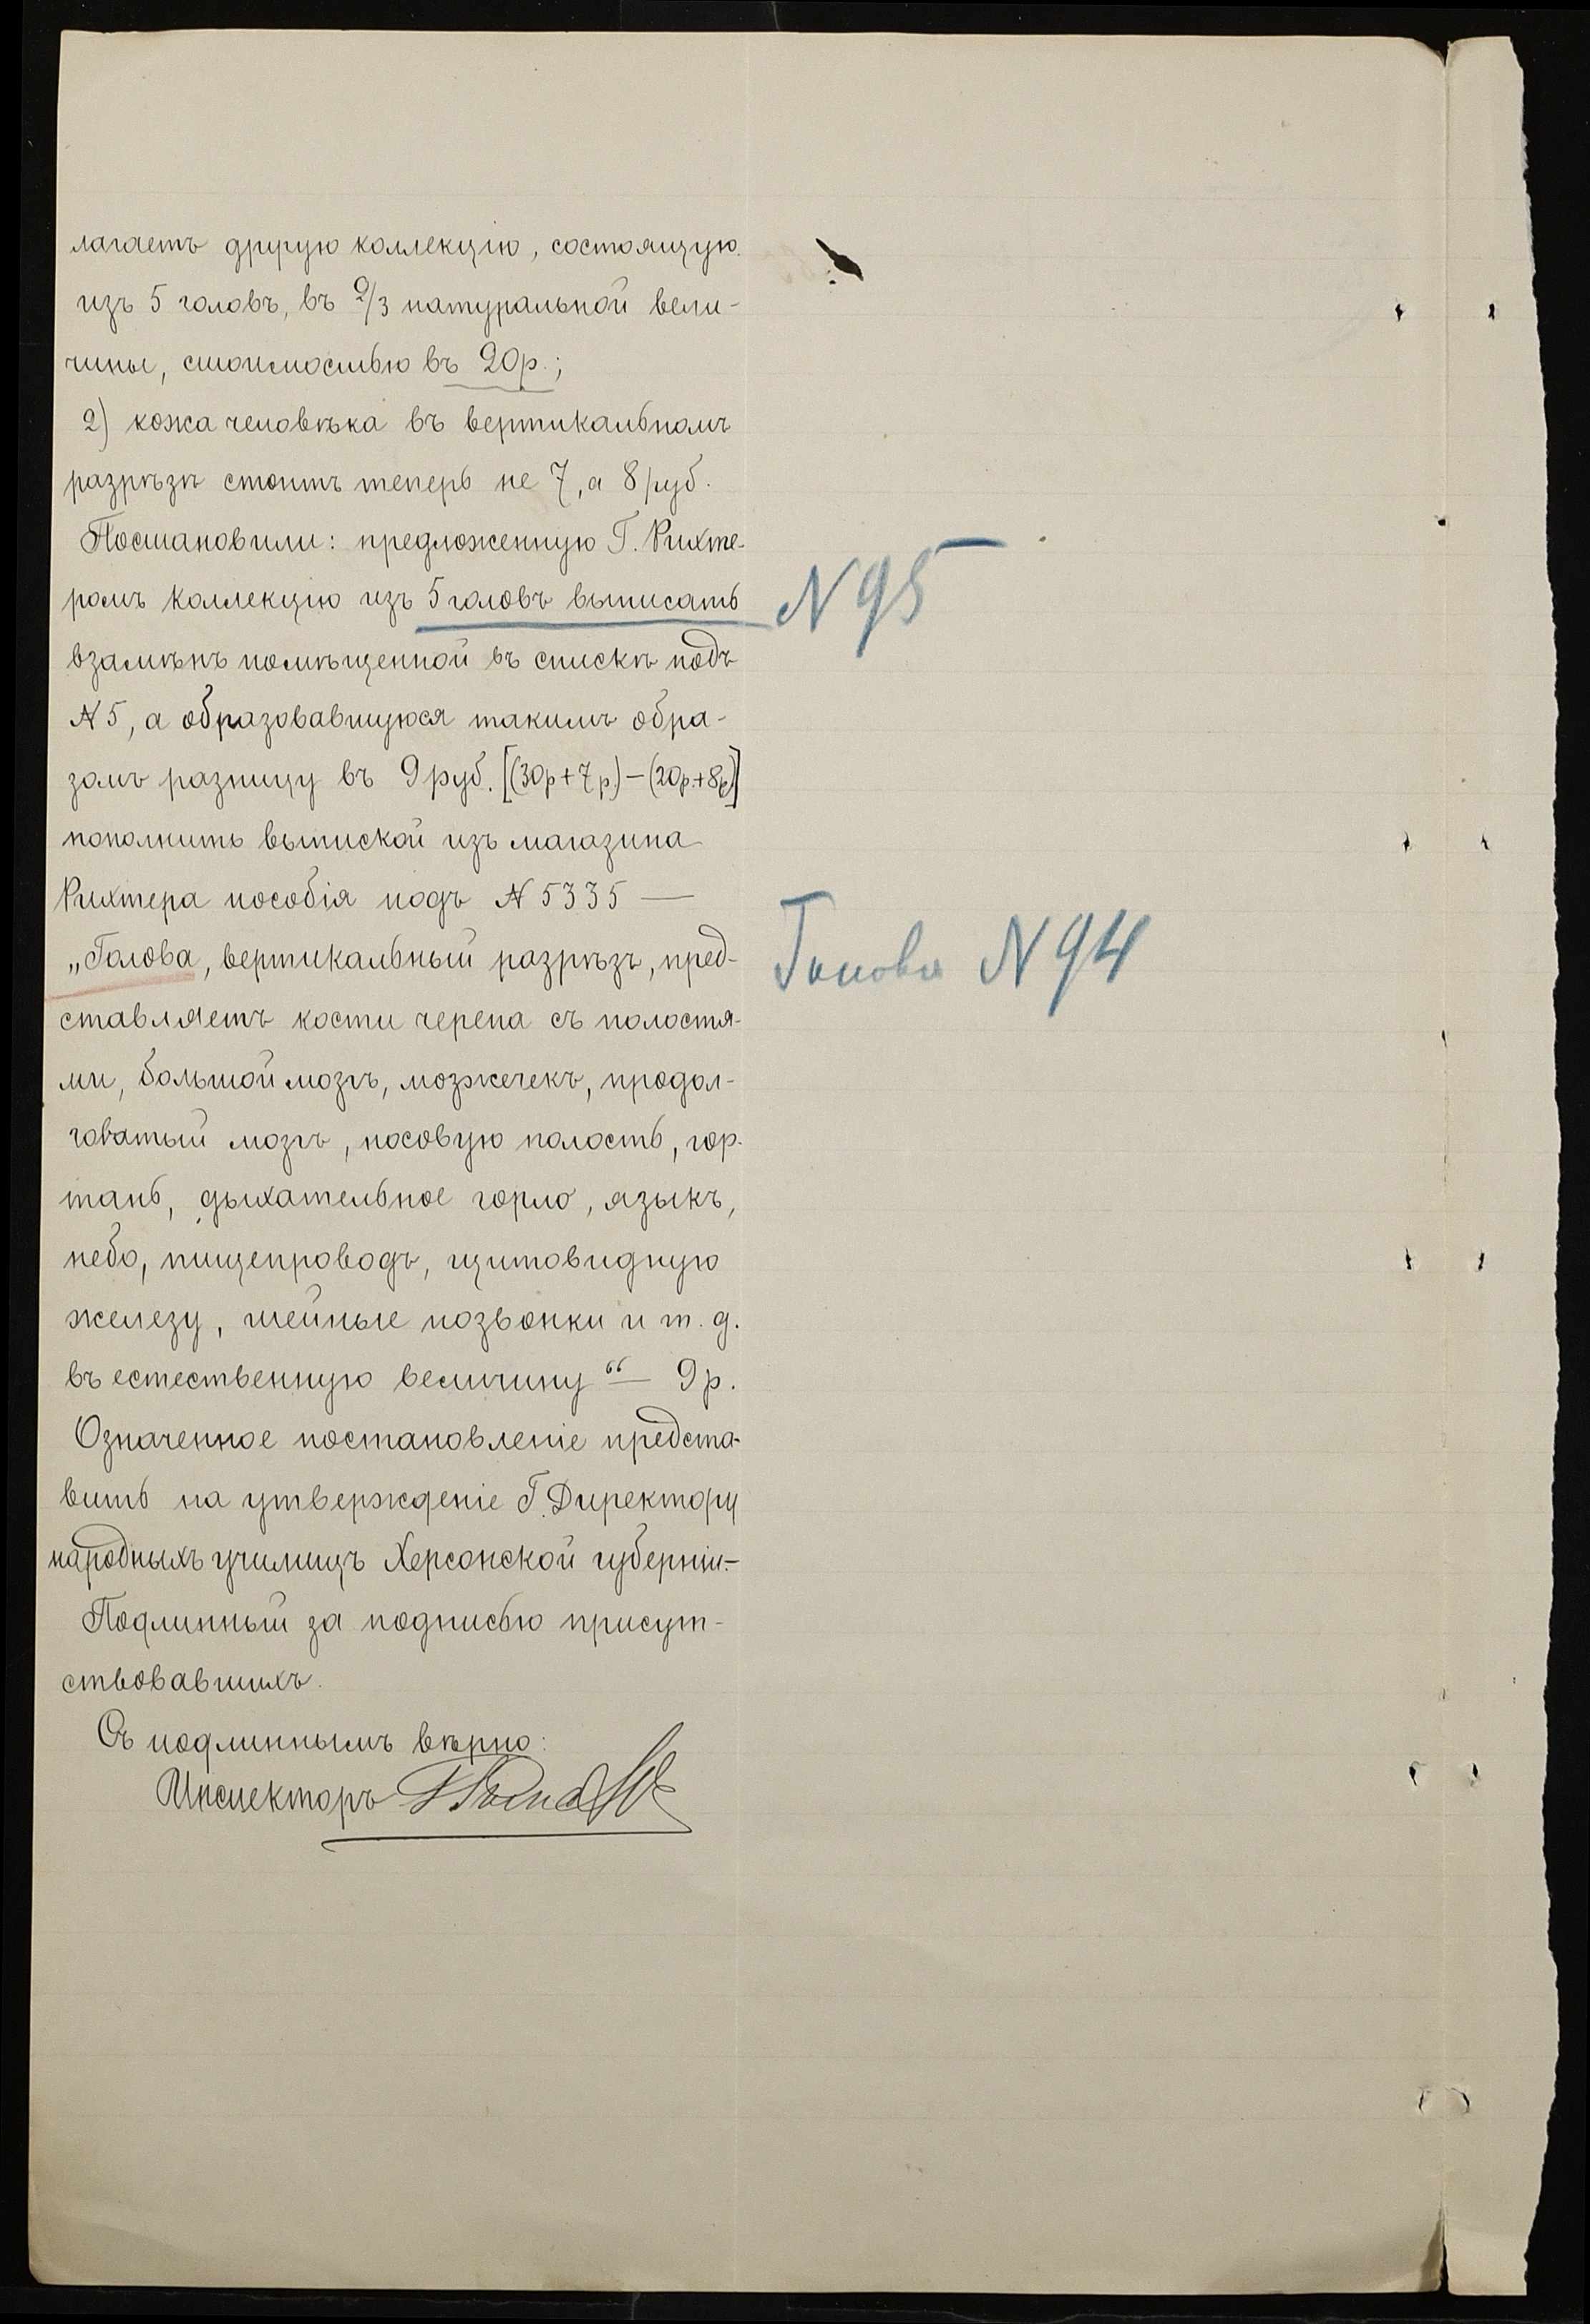 лагаетъ другую коллекцію, состоящую
изъ 5 головъ, въ 2/3 натуральной вели-
чины, стоимостью въ 20р.;
2) кожа человѣка въ вертикальномъ
разрѣзѣ стоитъ теперь не 7, а 8 руб.
Постановили: предложенную Г. Рихте-
ромъ коллекцію изъ 5 головъ выписать
N 95
взамѣнъ помѣщенной въ спискѣ подъ
N 5, а образовавшуюся такимъ обра-
зомъ разницу въ 9 руб. [(30р+7р.)-(20р.+8р)]
пополнить выпиской изъ магазина
Рихтера пособія подъ N 5335 —
„Голова, вертикальный разрѣзъ, пред-
Голова N 94
ставляетъ кости черепа съ полостя-
ми, большой мозгъ, мозжечекъ, продол-
говатый мозгъ, носовую полость, гор-
тань, дыхательное горло, языкъ,
небо, пищепроводъ, щитовидную
железу, шейные позвонки и т. д.
въ естественную величину“ — 9 р.
Означенное постановленіе предста-
вить на утвержденіе Г. Директору
народныхъ училищъ Херсонской губерніи.-
Подлинный за подписью присут-
ствовавшихъ.
Съ подлиннымъ вѣрно:
Инспекторъ